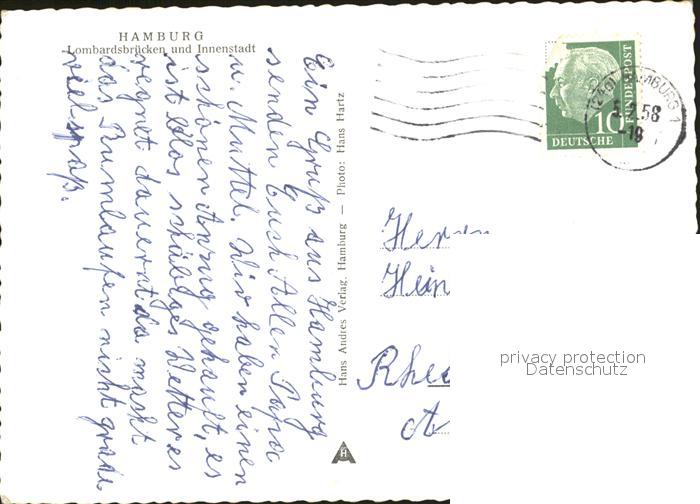 HAMBURG
Lombardsbrücken und Innenstadt
Ein Gruß aus Hamburg
senden Euch Allen Papa
u. Muttel. Wir haben einen
schönen Anzug gekauft, es
ist blos schäbiges Wetter es
regnet dauernd da macht
das Rumlaufen nicht grade
viel spaß.
Hans Andres Verlag, Hamburg — Photo: Hans Hartz
HAMBURG 1
2.58
-18
10
DEUTSCHE
BUNDESPOST
Herrn
Hein
Rhe
privacy protection
Datenschutz